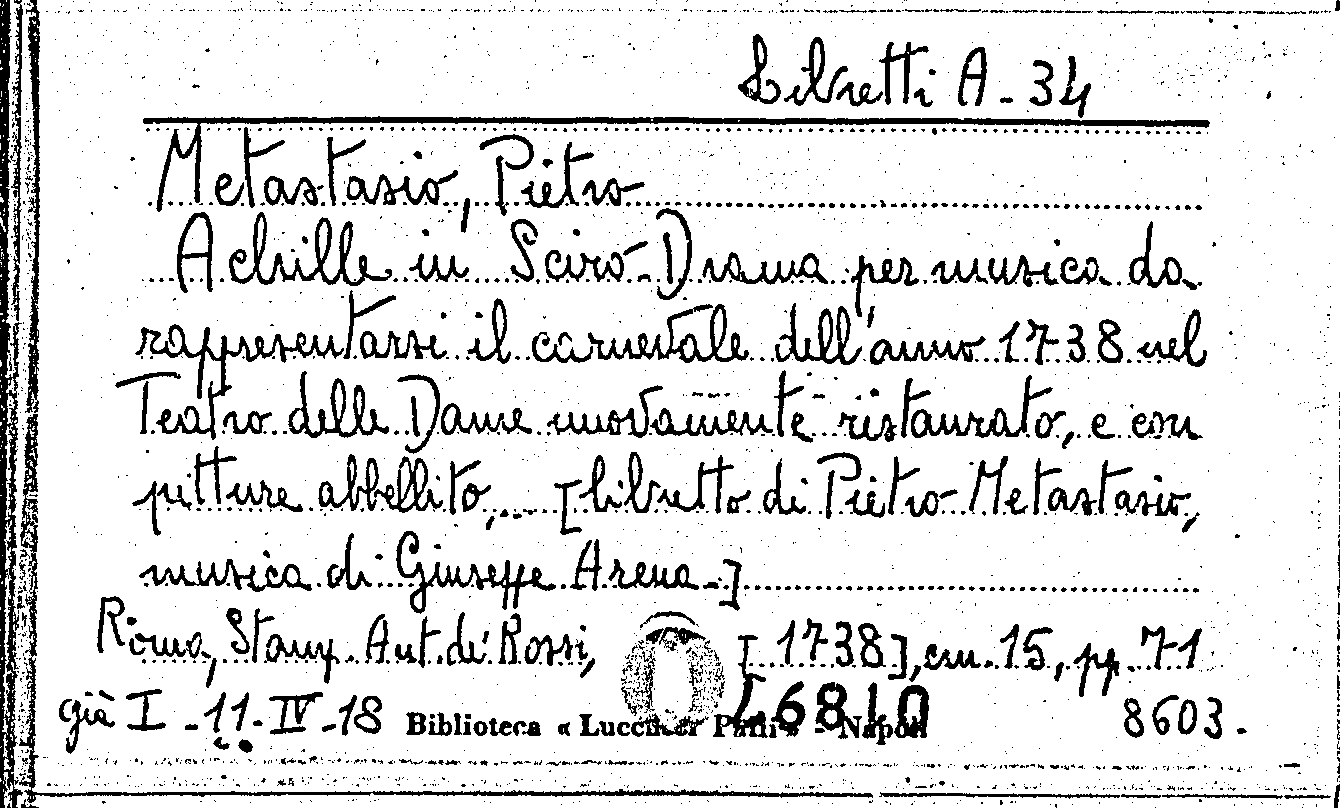 Libretti A-34
Metastasio, Pietro
Achille in Sciro - Drama per musica da
rappresentarsi il carnevale dell'anno 1738 nel
Teatro delle Dame nuovamente ristaurato, e con
pitture abbellito,... [libretto di Pietro Metastasio,
musica di Giuseppe Arena -]
Roma, Stamp. Ant. de' Rossi, [1738], cm. 15, pp. 71
già I - 11 - IV - 18 Biblioteca « Lucchesi Palli » - Napoli 8603.